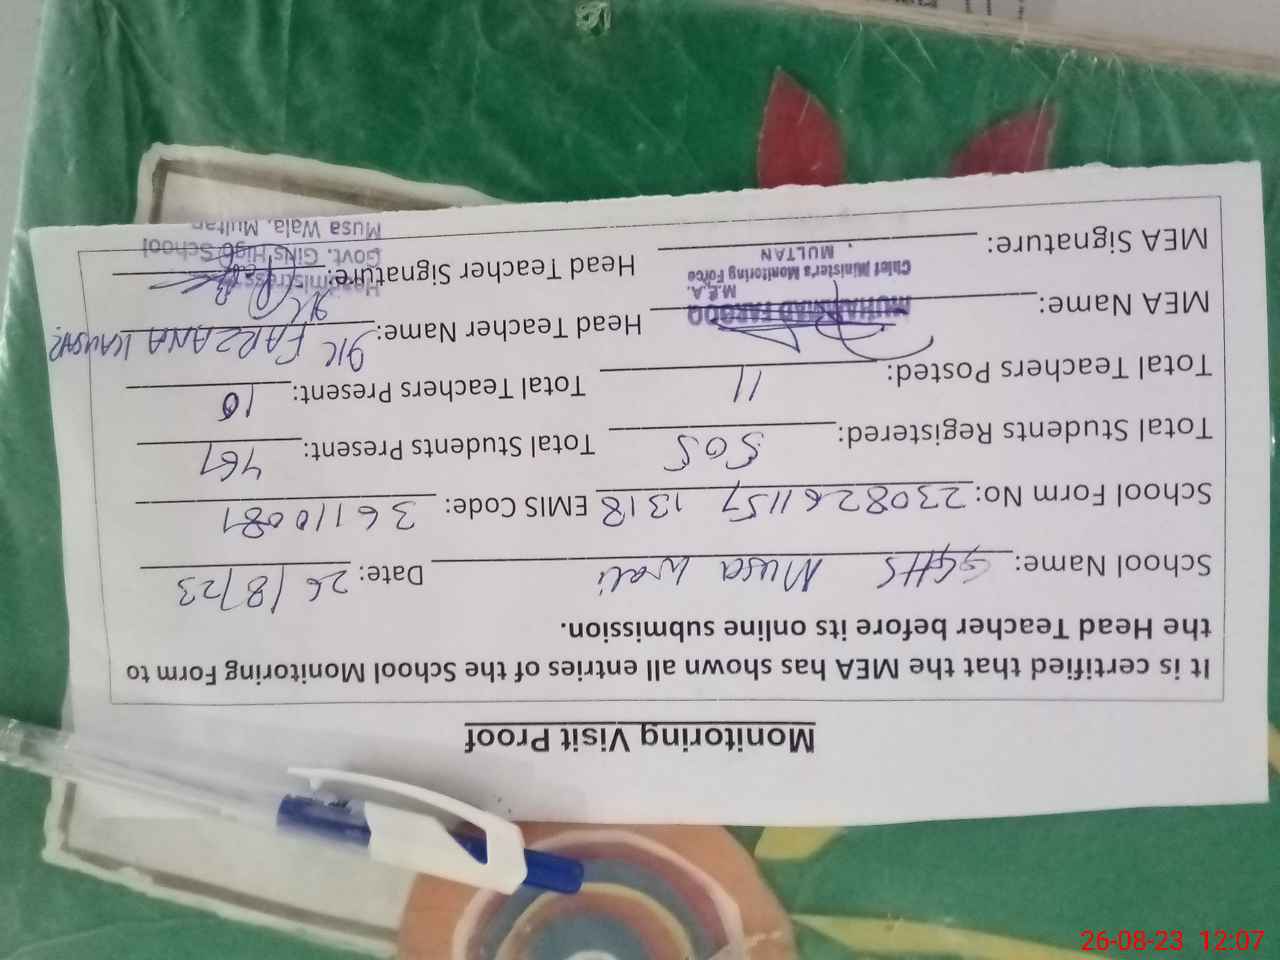 Monitoring Visit Proof
It is certified that the MEA has shown all entries of the School Monitoring Form to
the Head Teacher before its online submission.
School Name: GGHS Musa Wali Date: 26/8/23
School Form No: 2308261157 1318 EMIS Code: 36110081
Total Students Registered: 505 Total Students Present: 467
Total Teachers Posted: 11 Total Teachers Present: 10
MEA Name: MUHAMMAD FAROOQ Head Teacher Name: FARZANA KAUSAR
M.E.A.
Chief Minister's Monitoring Force
MULTAN
MEA Signature: Head Teacher Signature:
Headmistress
Govt. Girls High School
Musa Wala, Multan
26-08-23 12:07